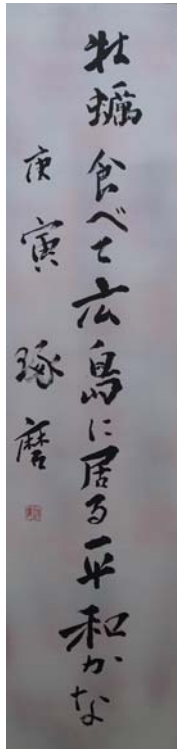 牡蠣食べて広島に居る平和かな
庚寅 琢磨